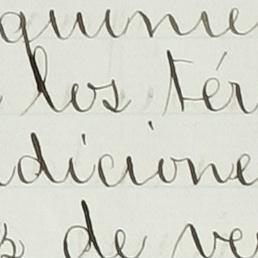 quinie
los tér
dicione
s de ve